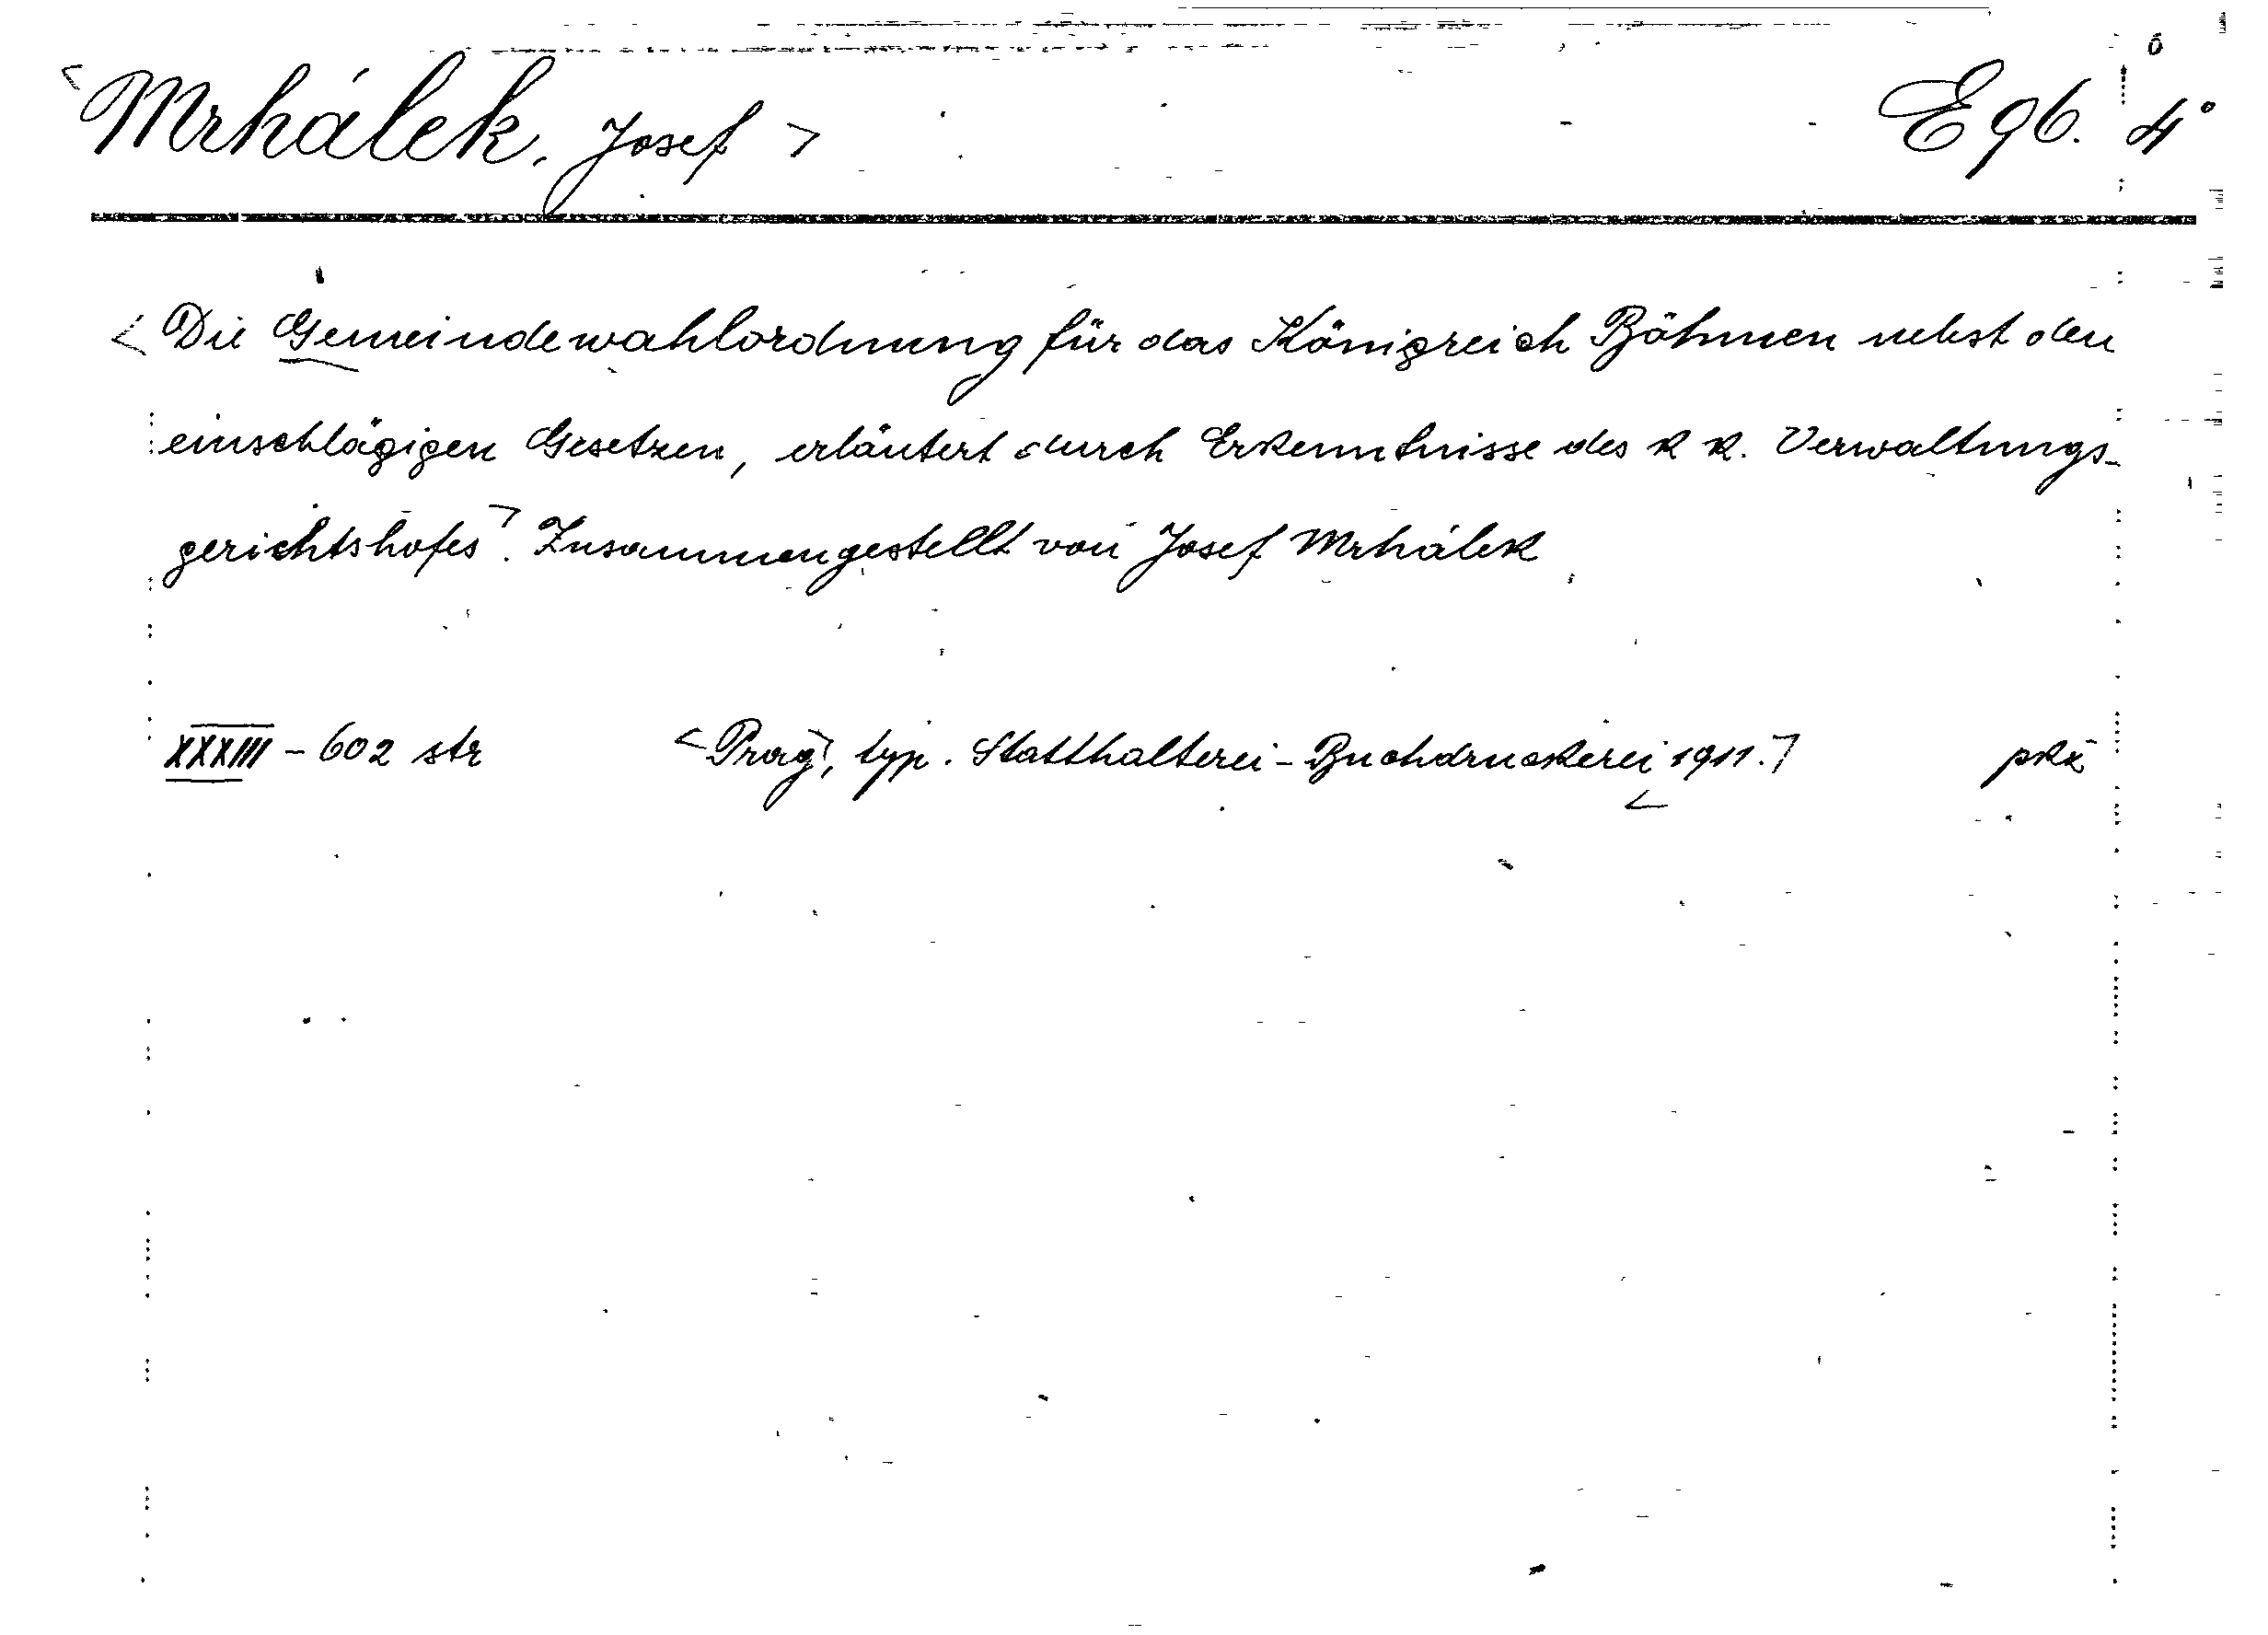 Mrhálek, Josef E 96. 4°
Die Gemeindewahlordnung für das Königreich Böhmen nebst den
einschlägigen Gesetzen, erläutert durch Erkenntnisse des k k. Verwaltungs-
gerichtshofes. Zusammengestellt von Josef Mrhálek
XXXIII - 602 str Prag, typ. Statthalterei-Buchdruckerei 1911.